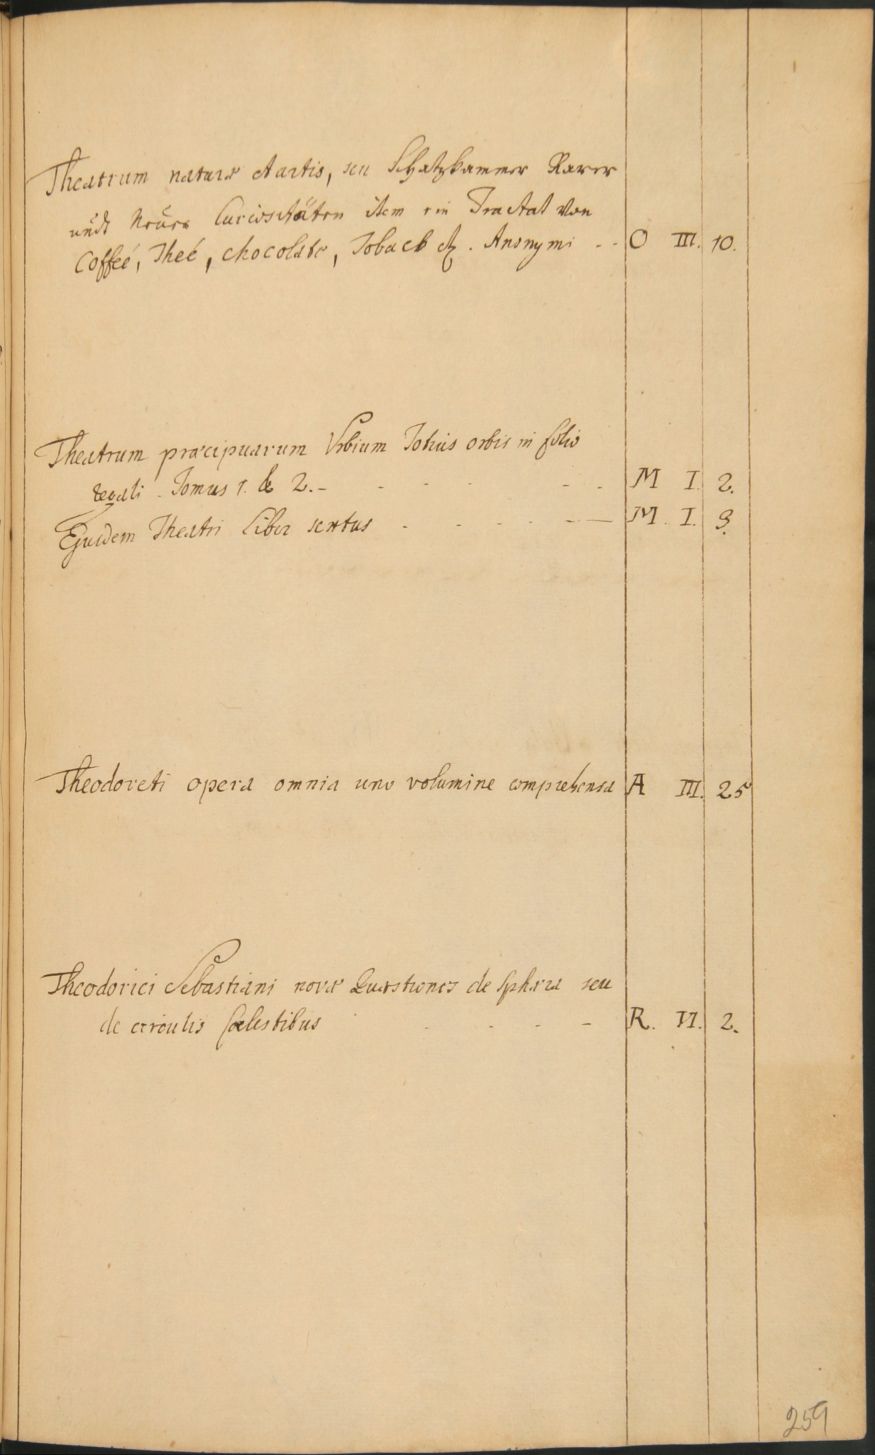 Theatrum naturæ et artis, seu Schatzkammer Rarer
undt Neüer Curiositäten item ein Tractat von
Coffeé, Theé, chocolate, Toback etc. Anonymi - - O III. 10.
Theatrum præcipuarum Urbium Totius orbis in folio
regali. Tomus 1. & 2. - - - - - - M I. 2.
Ejusdem Theatri Liber sextus - - - - - M. I. 3.
Theodoreti opera omnia uno volumine comprehensa A III. 25
Theodorici Sebastiani novæ Quæstiones de Sphæra seu
de circulis Cœlestibus - - - - R. VI. 2.
259